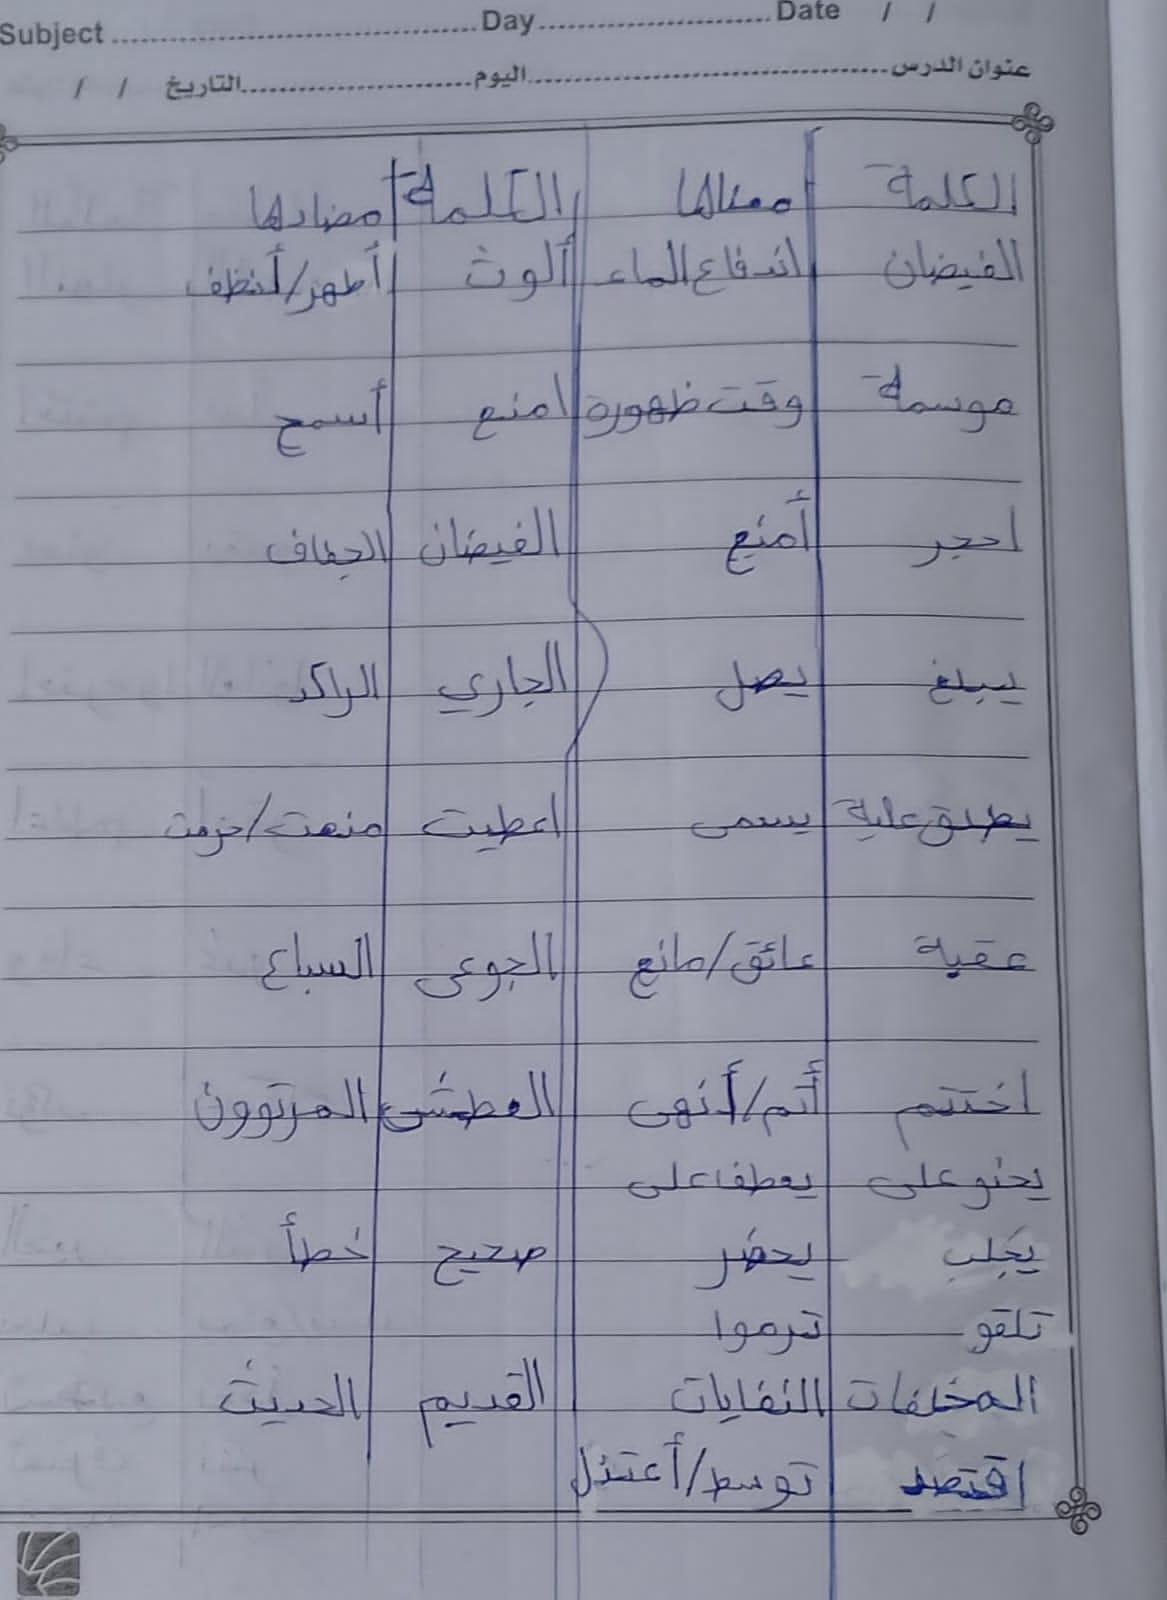 Subject ........ Day ........ Date / /
عنوان الدرس ........ اليوم ........ التاريخ / /
الكلمة معناها الكلمة مضادها
الفيضان اندفاع الماء ألوث أطهر/أنظف
موسمة وقت ظهورة امنع أسمح
احجر أمنع الفيضان الجفاف
يبلغ يصل الجاري الراكد
يطلق علية يسمى اعطيت منعت/حرمت
عقبة عائق/مانع الجوعى السباع
اختتم أتم/أنهى العطشى المرتوون
يحنو على يعطف على
يجلب يحضر صحيح خطأ
تلقو ترموا
المخلفات النفايات القديم الحديث
اقتصد توسط/أعتدل